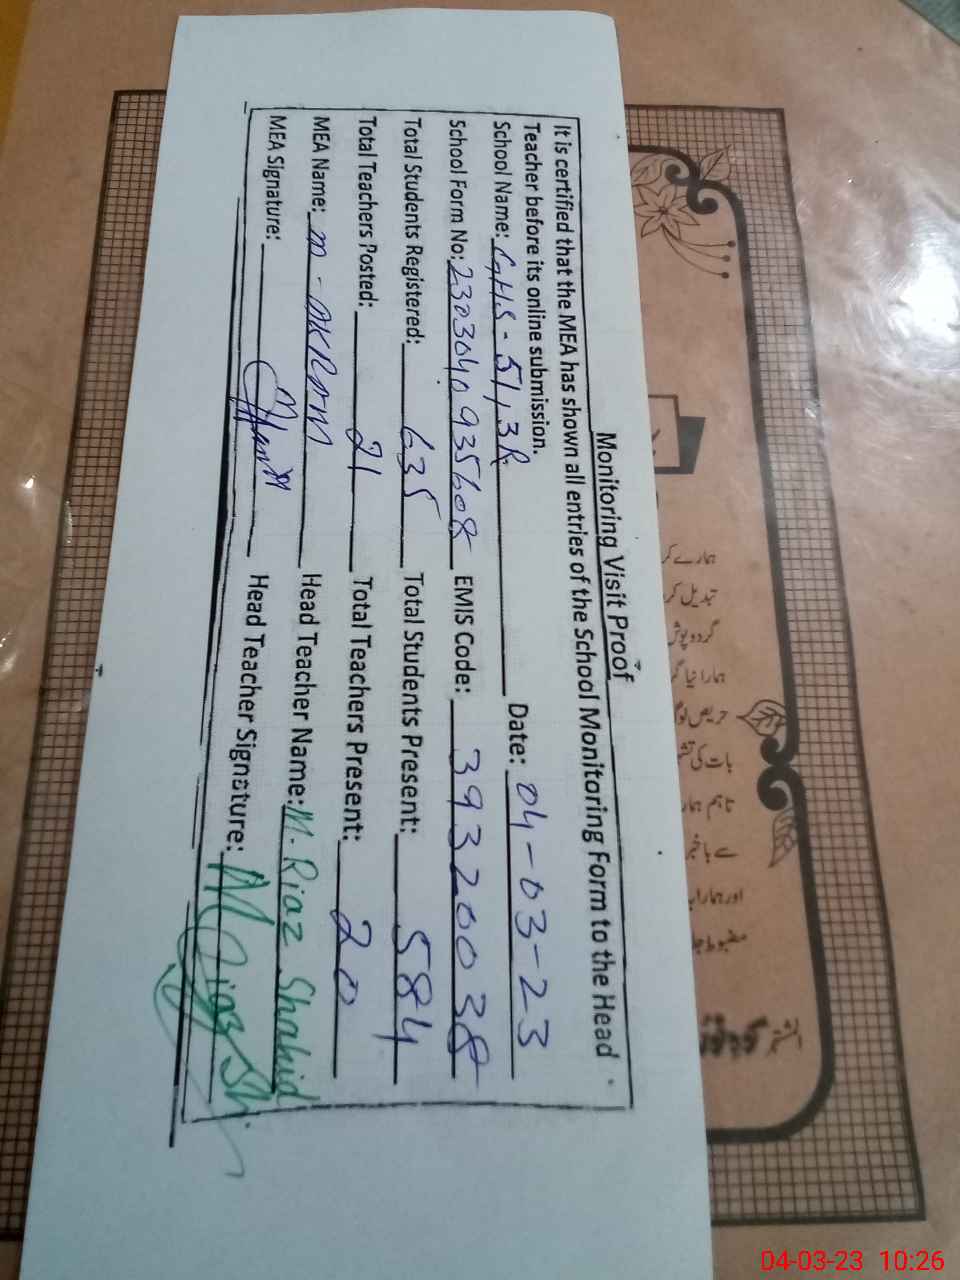 Monitoring Visit Proof
It is certified that the MEA has shown all entries of the School Monitoring Form to the Head
Teacher before its online submission.
School Name: G.H.S - 51, 3R Date: 04-03-23
School Form No: 2303040935608 EMIS Code: 39320038
Total Students Registered: 635 Total Students Present: 584
Total Teachers Posted: 21 Total Teachers Present: 20
MEA Name: m - akram Head Teacher Name: M. Riaz Shahid
MEA Signature: Head Teacher Signature:
ہمارے
تبدیل
گردوپوش
ہمارا نیا
حریص
بات کی
تاہم
سے باخبر
مضبوط
04-03-23 10:26